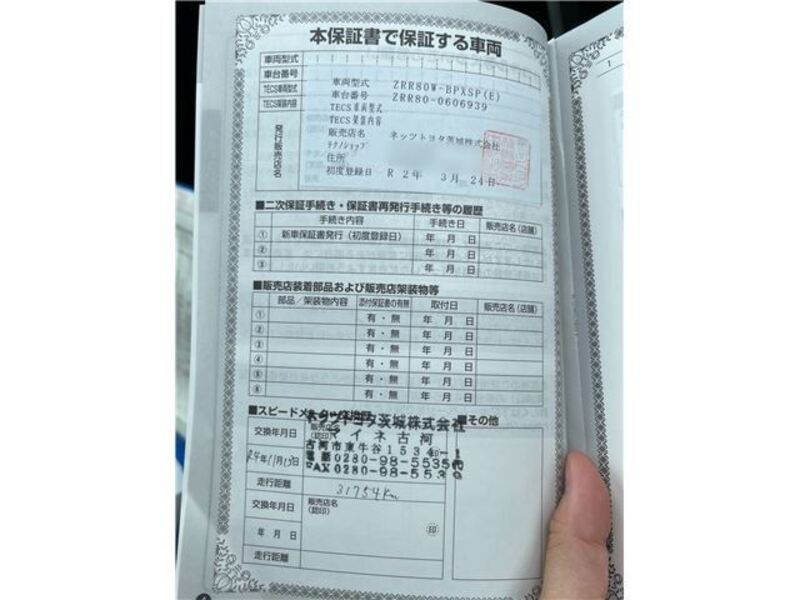 本保証書で保証する車両
車両型式
車台番号
TECS車両型式
TECS架装内容
発行販売店名
車両型式 ZRR80W-BPXSP(E)
車台番号 ZRR80-0606939
TECS車両型式
TECS架装内容
販売店名 ネッツトヨタ茨城株式会社
テクノショップ
住所
初度登録日 R 2年 3月 24日
■二次保証手続き・保証書再発行手続き等の履歴
手続き内容 手続き日 販売店名(店舗)
① 新車保証書発行(初度登録日) 年 月 日
② 年 月 日
③ 年 月 日
■販売店装着部品および販売店架装物等
部品/架装物内容 添付保証書の有無 取付日 販売店名(店舗)
① 有・無 年 月 日
② 有・無 年 月 日
③ 有・無 年 月 日
④ 有・無 年 月 日
⑤ 有・無 年 月 日
⑥ 有・無 年 月 日
■スピードメーター交換歴 ■その他
ネッツトヨタ茨城株式会社
交換年月日 販売店名
(認印)
マイネ古河
古河市東牛谷1534-1
R4年11月13日
電話0280-98-5535
FAX0280-98-5539
走行距離 31754Km
交換年月日 販売店名
(認印)
年 月 日 印
走行距離